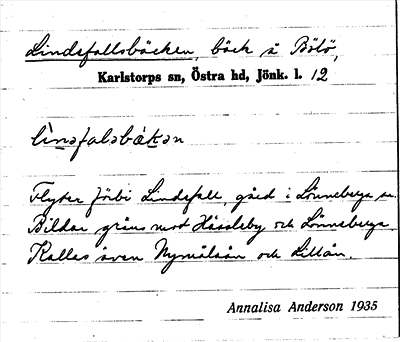 Lindefallsbäcken, bäck å Bölö,
Karlstorps sn, Östra hd, Jönk. l. 12
lìnəfalsbäkən
Flyter förbi Lindefall, gård i Lönneberga sn.
Bildar gräns mot Hässleby och Lönneberga.
Kallas även Nymålaån och Lillån.
Annalisa Anderson 1935